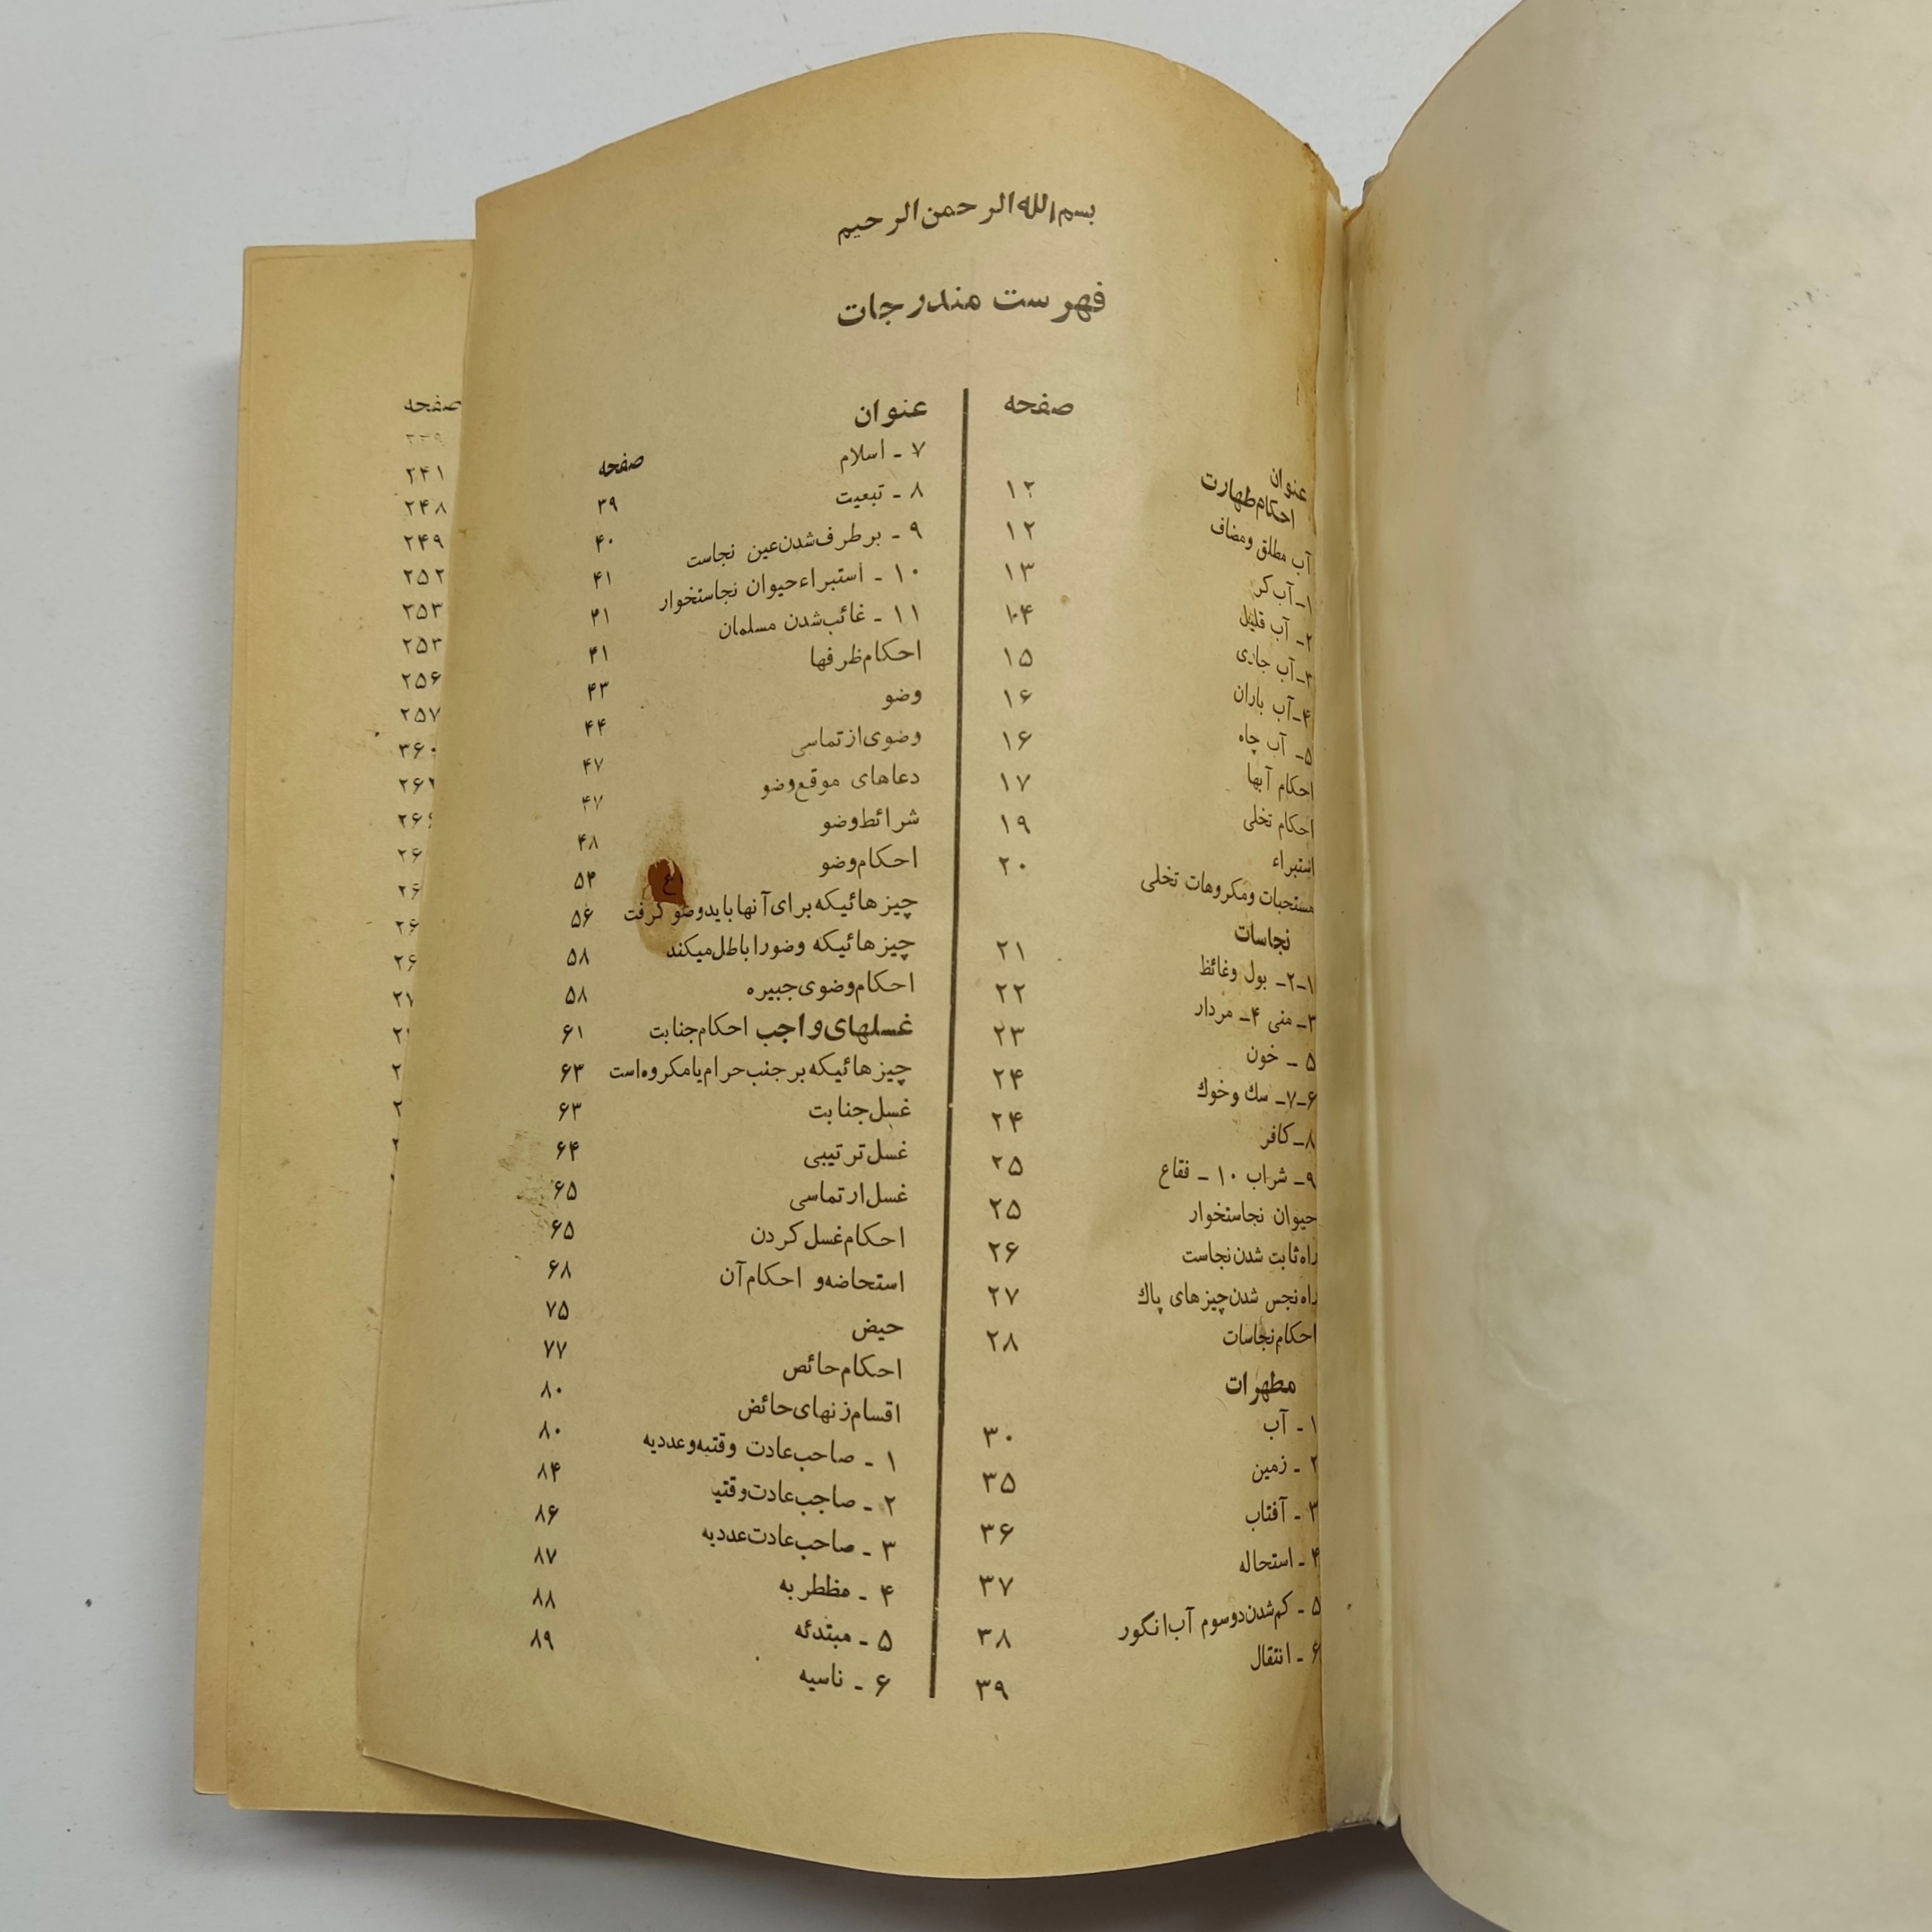 بسم‌الله‌الرحمن‌الرحیم
فهرست مندرجات
عنوان صفحه
احکام‌طهارت ۱۲
آب مطلق ومضاف ۱۲
۱ـ آب‌کر ۱۳
۲ـ آب قلیل ۱۰۴
۳ـ آب جاری ۱۵
۴ـ آب باران ۱۶
۵ـ آب چاه ۱۶
احکام آبها ۱۷
احکام تخلی ۱۹
استبراء ۲۰
مستحبات ومکروهات تخلی
نجاسات
۱ـ۲ـ بول وغائط ۲۱
۳ـ منی ۴ـ مردار ۲۲
۵ ـ خون ۲۳
۶ـ۷ـ سك وخوك ۲۴
۸ـ کافر ۲۴
۹ـ شراب ۱۰ ـ فقاع ۲۵
حیوان نجاستخوار ۲۵
راه‌ثابت شدن‌نجاست ۲۶
راه‌نجس شدن‌چیزهای پاك ۲۷
احکام‌نجاسات ۲۸
مطهرات
۱ ـ آب ۳۰
۲ ـ زمین ۳۵
۳ ـ آفتاب ۳۶
۴ ـ استحاله ۳۷
۵ ـ کم‌شدن‌دوسوم آب‌انگور ۳۸
۶ ـ انتقال ۳۹
عنوان صفحه
۷ ـ اسلام ۳۹
۸ ـ تبعیت ۴۰
۹ ـ برطرف‌شدن‌عین نجاست ۴۱
۱۰ ـ استبراءحیوان نجاستخوار ۴۱
۱۱ ـ غائب‌شدن مسلمان ۴۱
احکام‌ظرفها ۴۳
وضو ۴۴
وضوی‌ارتماسی ۴۷
دعاهای موقع‌وضو ۴۷
شرائط‌وضو ۴۸
احکام‌وضو ۵۴
چیزهائیکه‌برای‌آنهابایدوضو گرفت ۵۶
چیزهائیکه وضوراباطل‌میکند ۵۸
احکام‌وضوی‌جبیره ۵۸
غسلهای‌واجب احکام‌جنابت ۶۱
چیزهائیکه‌برجنب‌حرام‌یامکروه‌است ۶۳
غسل‌جنابت ۶۳
غسل‌ترتیبی ۶۴
غسل‌ارتماسی ۶۵
احکام‌غسل‌کردن ۶۵
استحاضه‌و احکام‌آن ۶۸
حیض ۷۵
احکام‌حائص ۷۷
اقسام‌زنهای‌حائض ۸۰
۱ ـ صاحب‌عادت وقتیه‌وعددیه ۸۰
۲ ـ صاحب‌عادت‌وقتیه ۸۴
۳ ـ صاحب‌عادت‌عددیه ۸۶
۴ ـ مظطربه ۸۷
۵ ـ مبتدئه ۸۸
۶ ـ ناسیه ۸۹
صفحه
۲۴۱
۲۴۸
۲۴۹
۲۵۲
۲۵۳
۲۵۳
۲۵۶
۲۵۷
۳۶۰